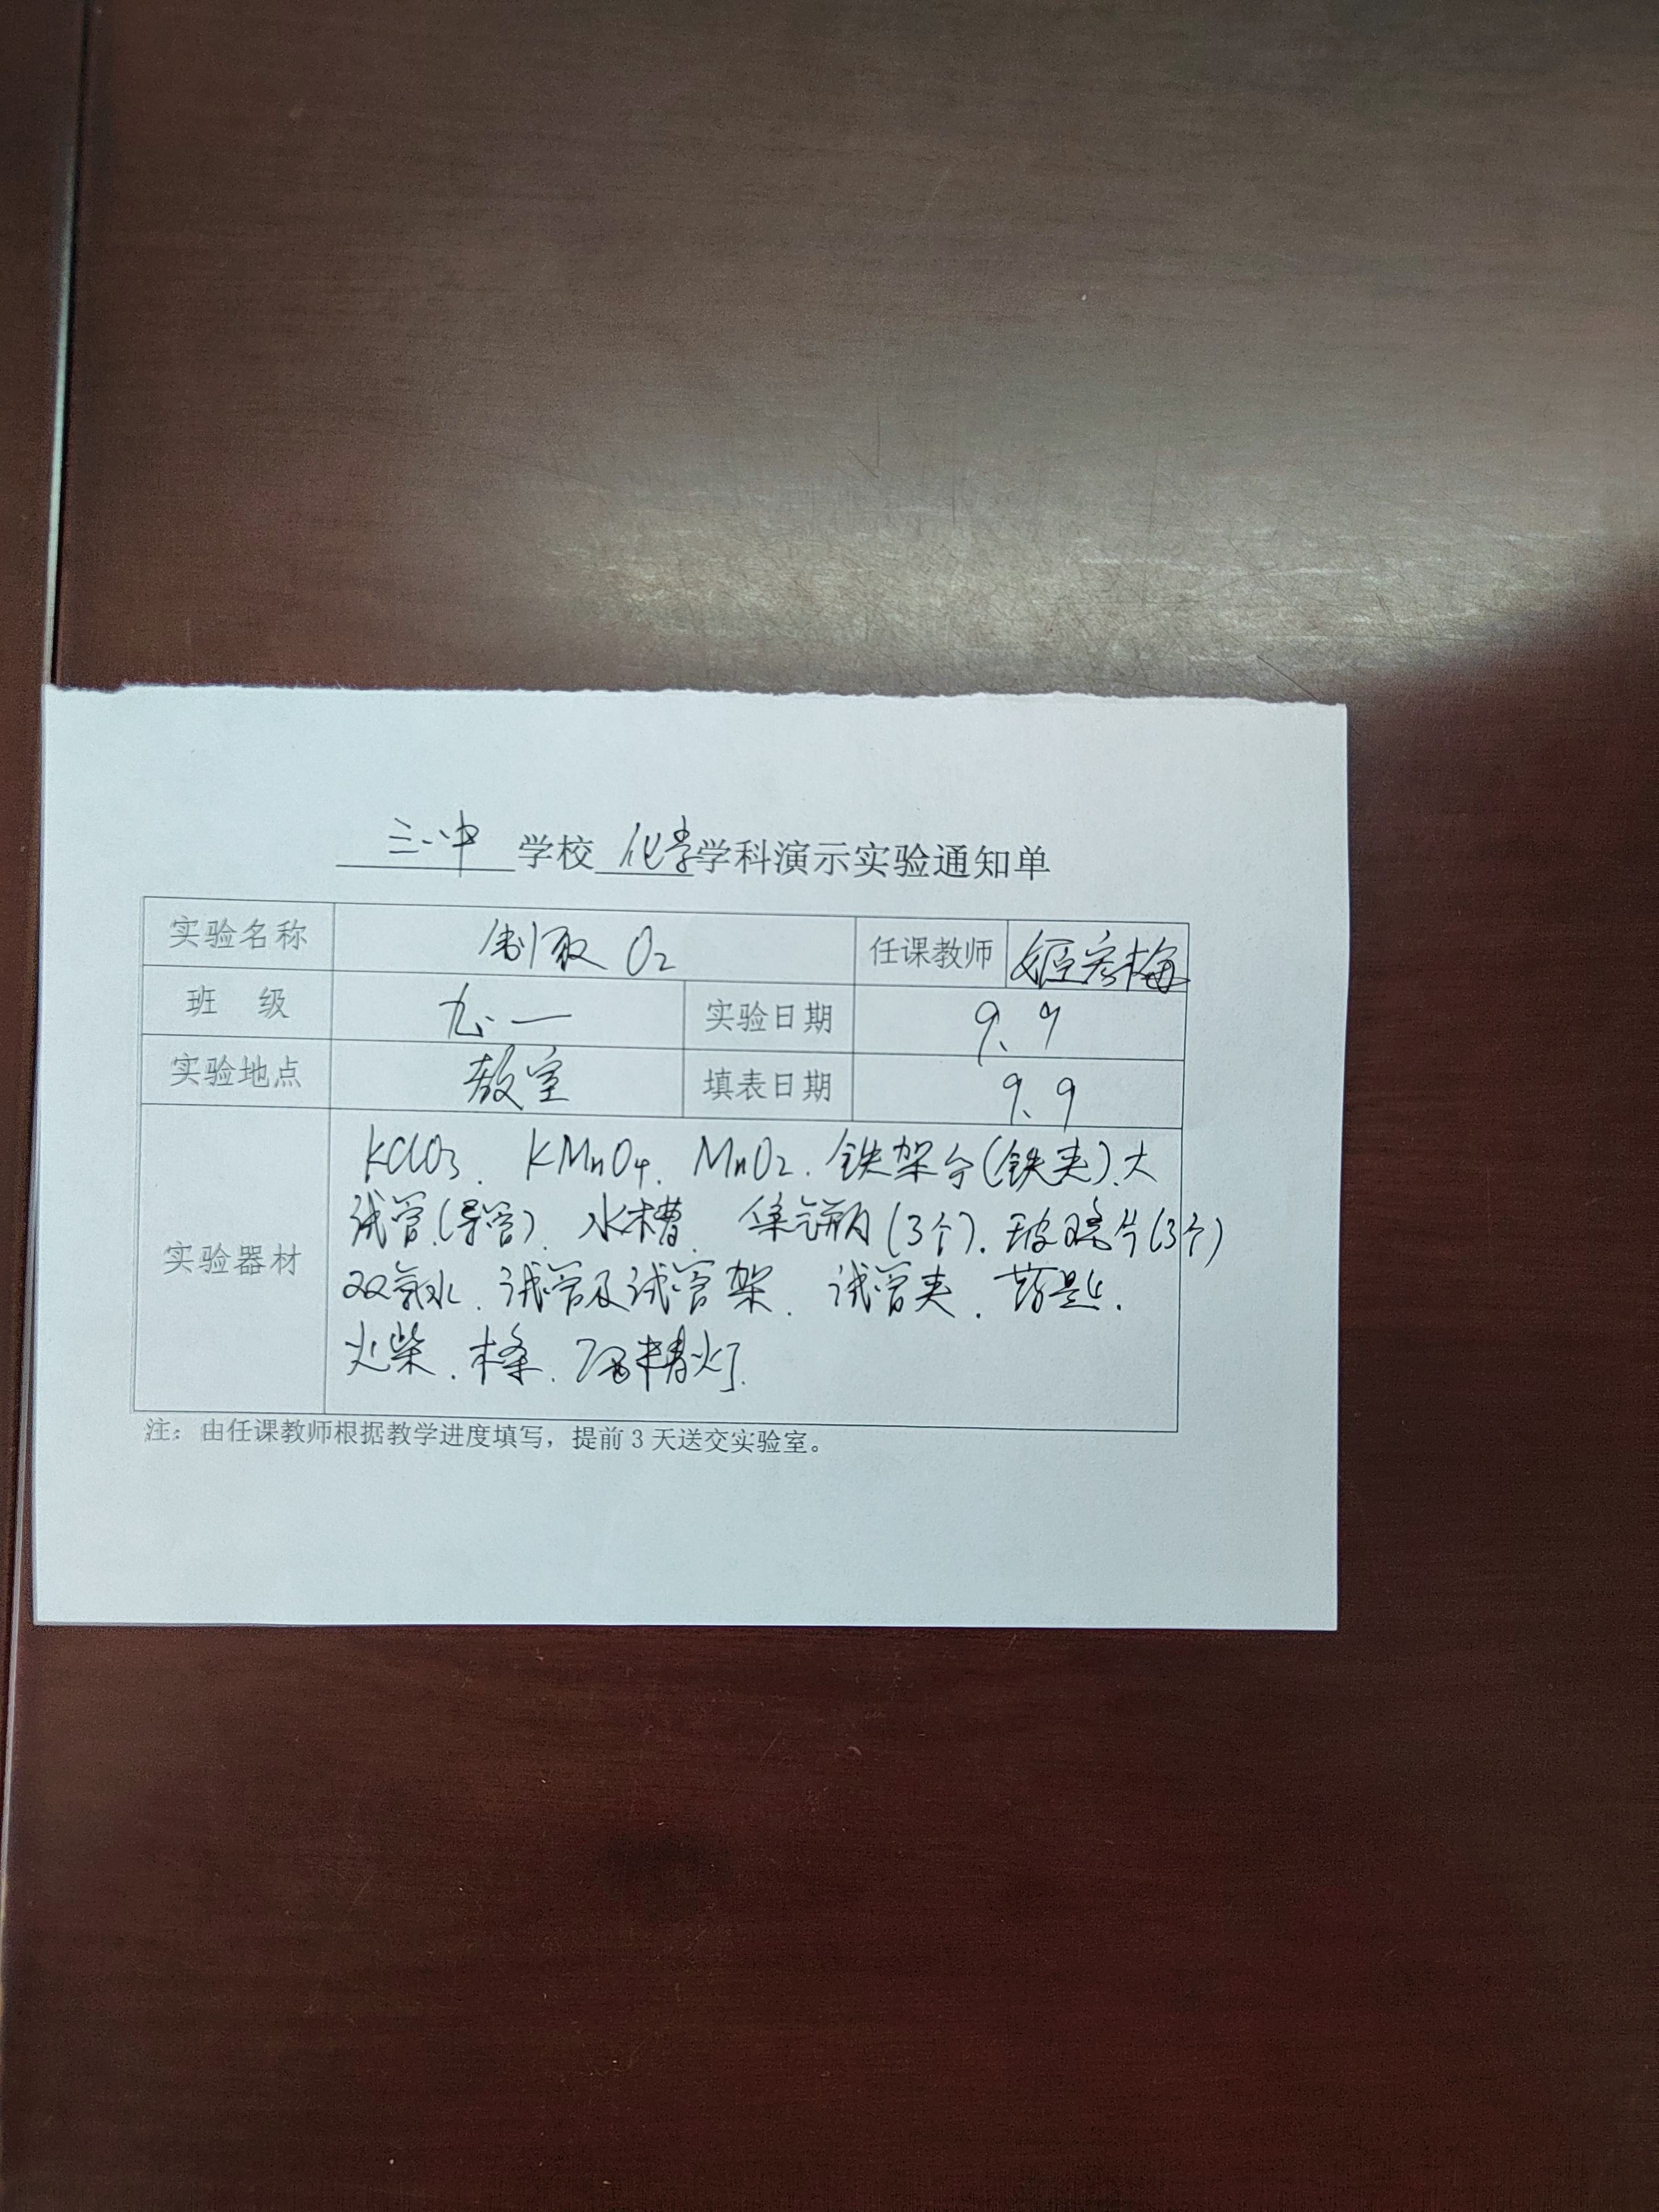 三中 学校 化学 学科演示实验通知单
实验名称 制取 O₂ 任课教师 姬彦梅
班 级 九.一 实验日期 9.9
实验地点 教室 填表日期 9.9
KClO₃、KMnO₄、MnO₂.铁架台(铁夹).大
试管.(导管)、水槽、集气瓶(3个).玻璃片(3个)
实验器材
双氧水.试管及试管架.试管夹.药匙.
火柴.木条.酒精灯.
注：由任课教师根据教学进度填写，提前 3 天送交实验室。